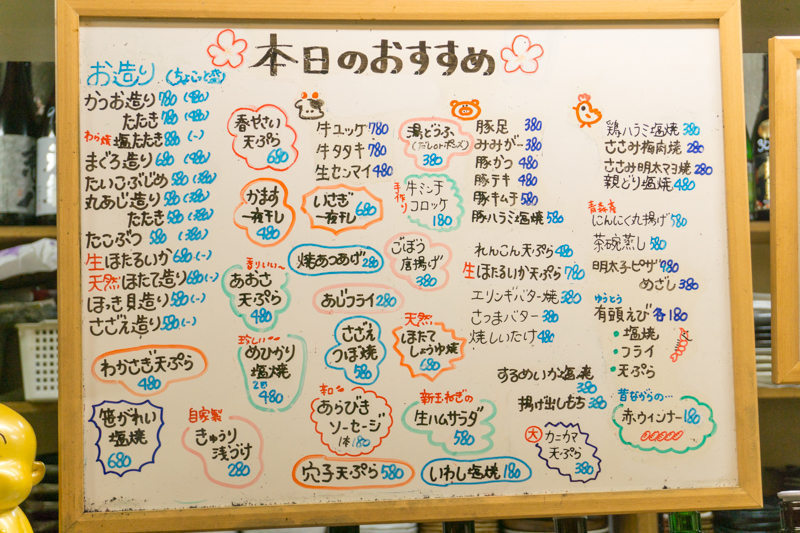 本日のおすすめ
お造り (ちょこっと盛)
かつお造り 780 (480)
たたき 780 (480)
わら焼 塩たたき 880 (-)
まぐろ造り 680 (480)
たいこぶじめ 580 (380)
丸あじ造り 580 (380)
たたき 580 (380)
たこぶつ 580 (380)
生ほたるいか 680 (-)
天然ほたて造り 680 (-)
ほっき貝造り 580 (-)
さざえ造り 580 (-)
わかさぎ天ぷら
480
笹がれい
塩焼
680
自家製
きゅうり
浅づけ
280
春やさい
天ぷら
680
かます
一夜干し
480
香りいい~
あおさ
天ぷら
480
珍しい~
めひかり
塩焼
2匹
480
牛ユッケ 780
牛タタキ 780
生センマイ 480
いさぎ
一夜干し
680
焼あつあげ 280
あじフライ 280
さざえ
つぼ焼
580
天然
ほたて
しょうゆ焼
680
和~
あらびき
ソーセージ
1本 180
穴子天ぷら 580
湯どうふ
(だし or ポン)
380
手作り
牛ミンチ
コロッケ
180
ごぼう
唐揚げ
380
新玉ねぎの
生ハムサラダ
580
いわし塩焼 180
豚足 380
みみがー 380
豚かつ 480
豚テキ 480
豚キムチ 580
豚ハラミ塩焼 580
れんこん天ぷら 480
生ほたるいか天ぷら 780
エリンギバター焼 380
さつまバター 380
焼しいたけ 480
するめいか塩焼
380
揚げ出しもち 380
大 カニカマ
天ぷら
380
鶏ハラミ塩焼 380
ささみ梅肉焼 280
ささみ明太マヨ焼 280
親どり塩焼 480
青森産
にんにく丸揚げ 580
茶碗蒸し 580
明太子ピザ 780
めざし 380
ゆうとう
有頭えび 各180
・塩焼
・フライ
・天ぷら
昔ながらの…
赤ウインナー 180